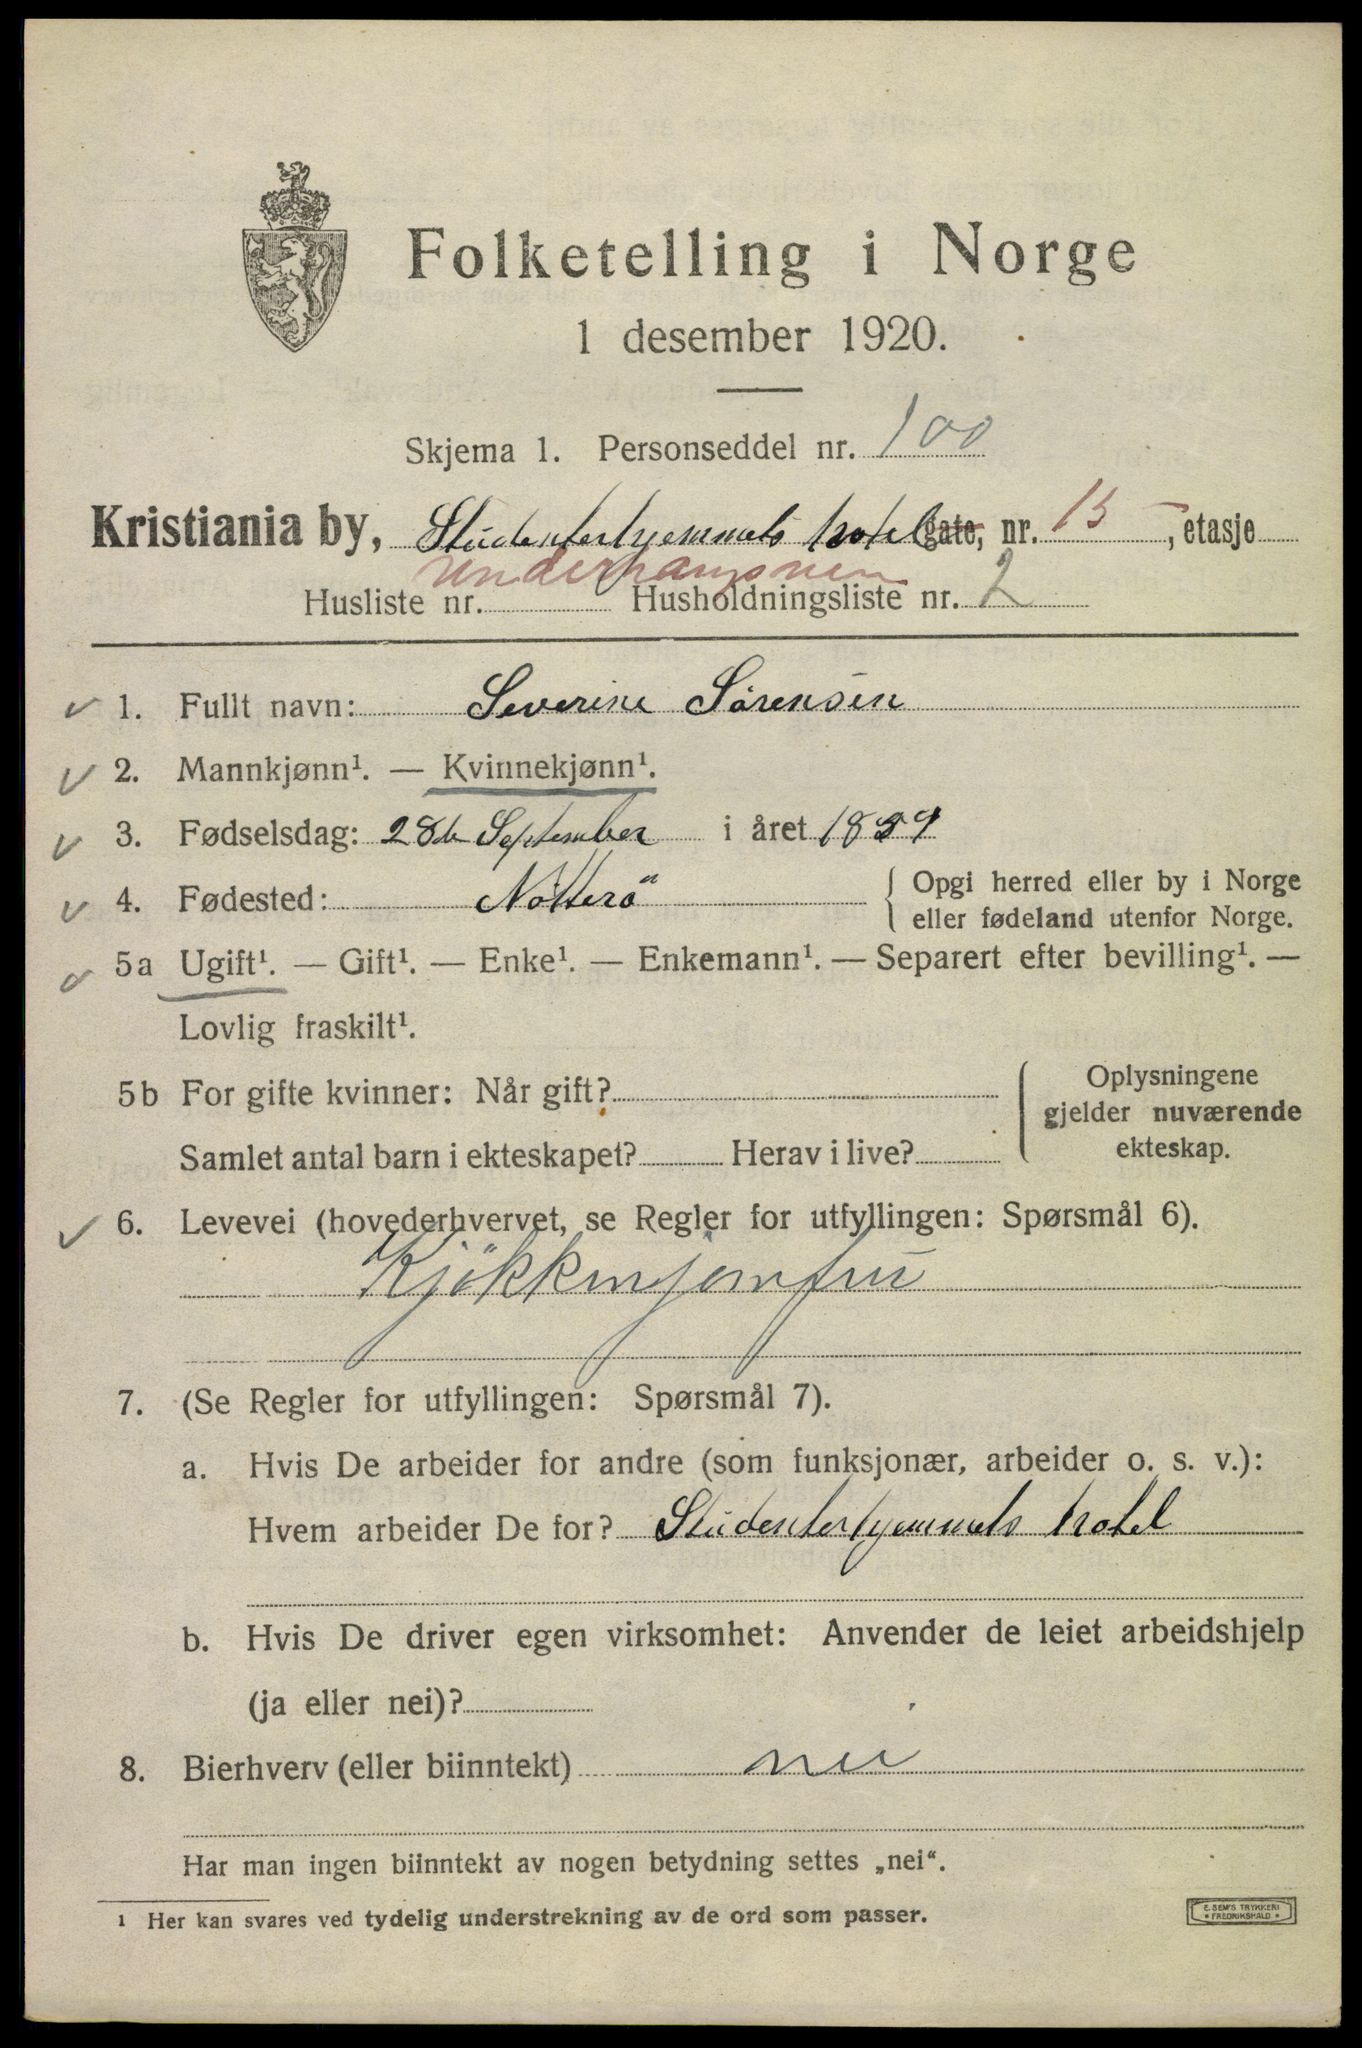 Folketelling i Norge
1 desember 1920.
Skjema 1. Personseddel nr. 100
Kristiania by, Studenterhjemmets hotel gate, nr. 15, etasje
Husliste nr. Husholdningsliste nr. 2
1. Fullt navn: Severine Sørensen
2. Mannkjønn¹. — Kvinnekjønn¹.
3. Fødselsdag: 28de September i året 18
4. Fødested: Nötterö { Opgi herred eller by i Norge
eller fødeland utenfor Norge.
5a Ugift¹. — Gift¹. — Enke¹. — Enkemann¹. — Separert efter bevilling¹. —
Lovlig fraskilt¹.
5b For gifte kvinner: Når gift? { Oplysningene
gjelder nuværende
Samlet antal barn i ekteskapet? Herav i live? ekteskap.
6. Levevei (hovederhvervet, se Regler for utfyllingen: Spørsmål 6).
Kjökkenjomfru
7. (Se Regler for utfyllingen: Spørsmål 7).
a. Hvis De arbeider for andre (som funksjonær, arbeider o. s. v.):
Hvem arbeider De for? Studenterhjemmets hotel
b. Hvis De driver egen virksomhet: Anvender de leiet arbeidshjelp
(ja eller nei)?
8. Bierhverv (eller biinntekt) nei
Har man ingen biinntekt av nogen betydning settes „nei“.
1 Her kan svares ved tydelig understrekning av de ord som passer.
E. SEM'S TRYKKERI
* FREDRIKSHALD *